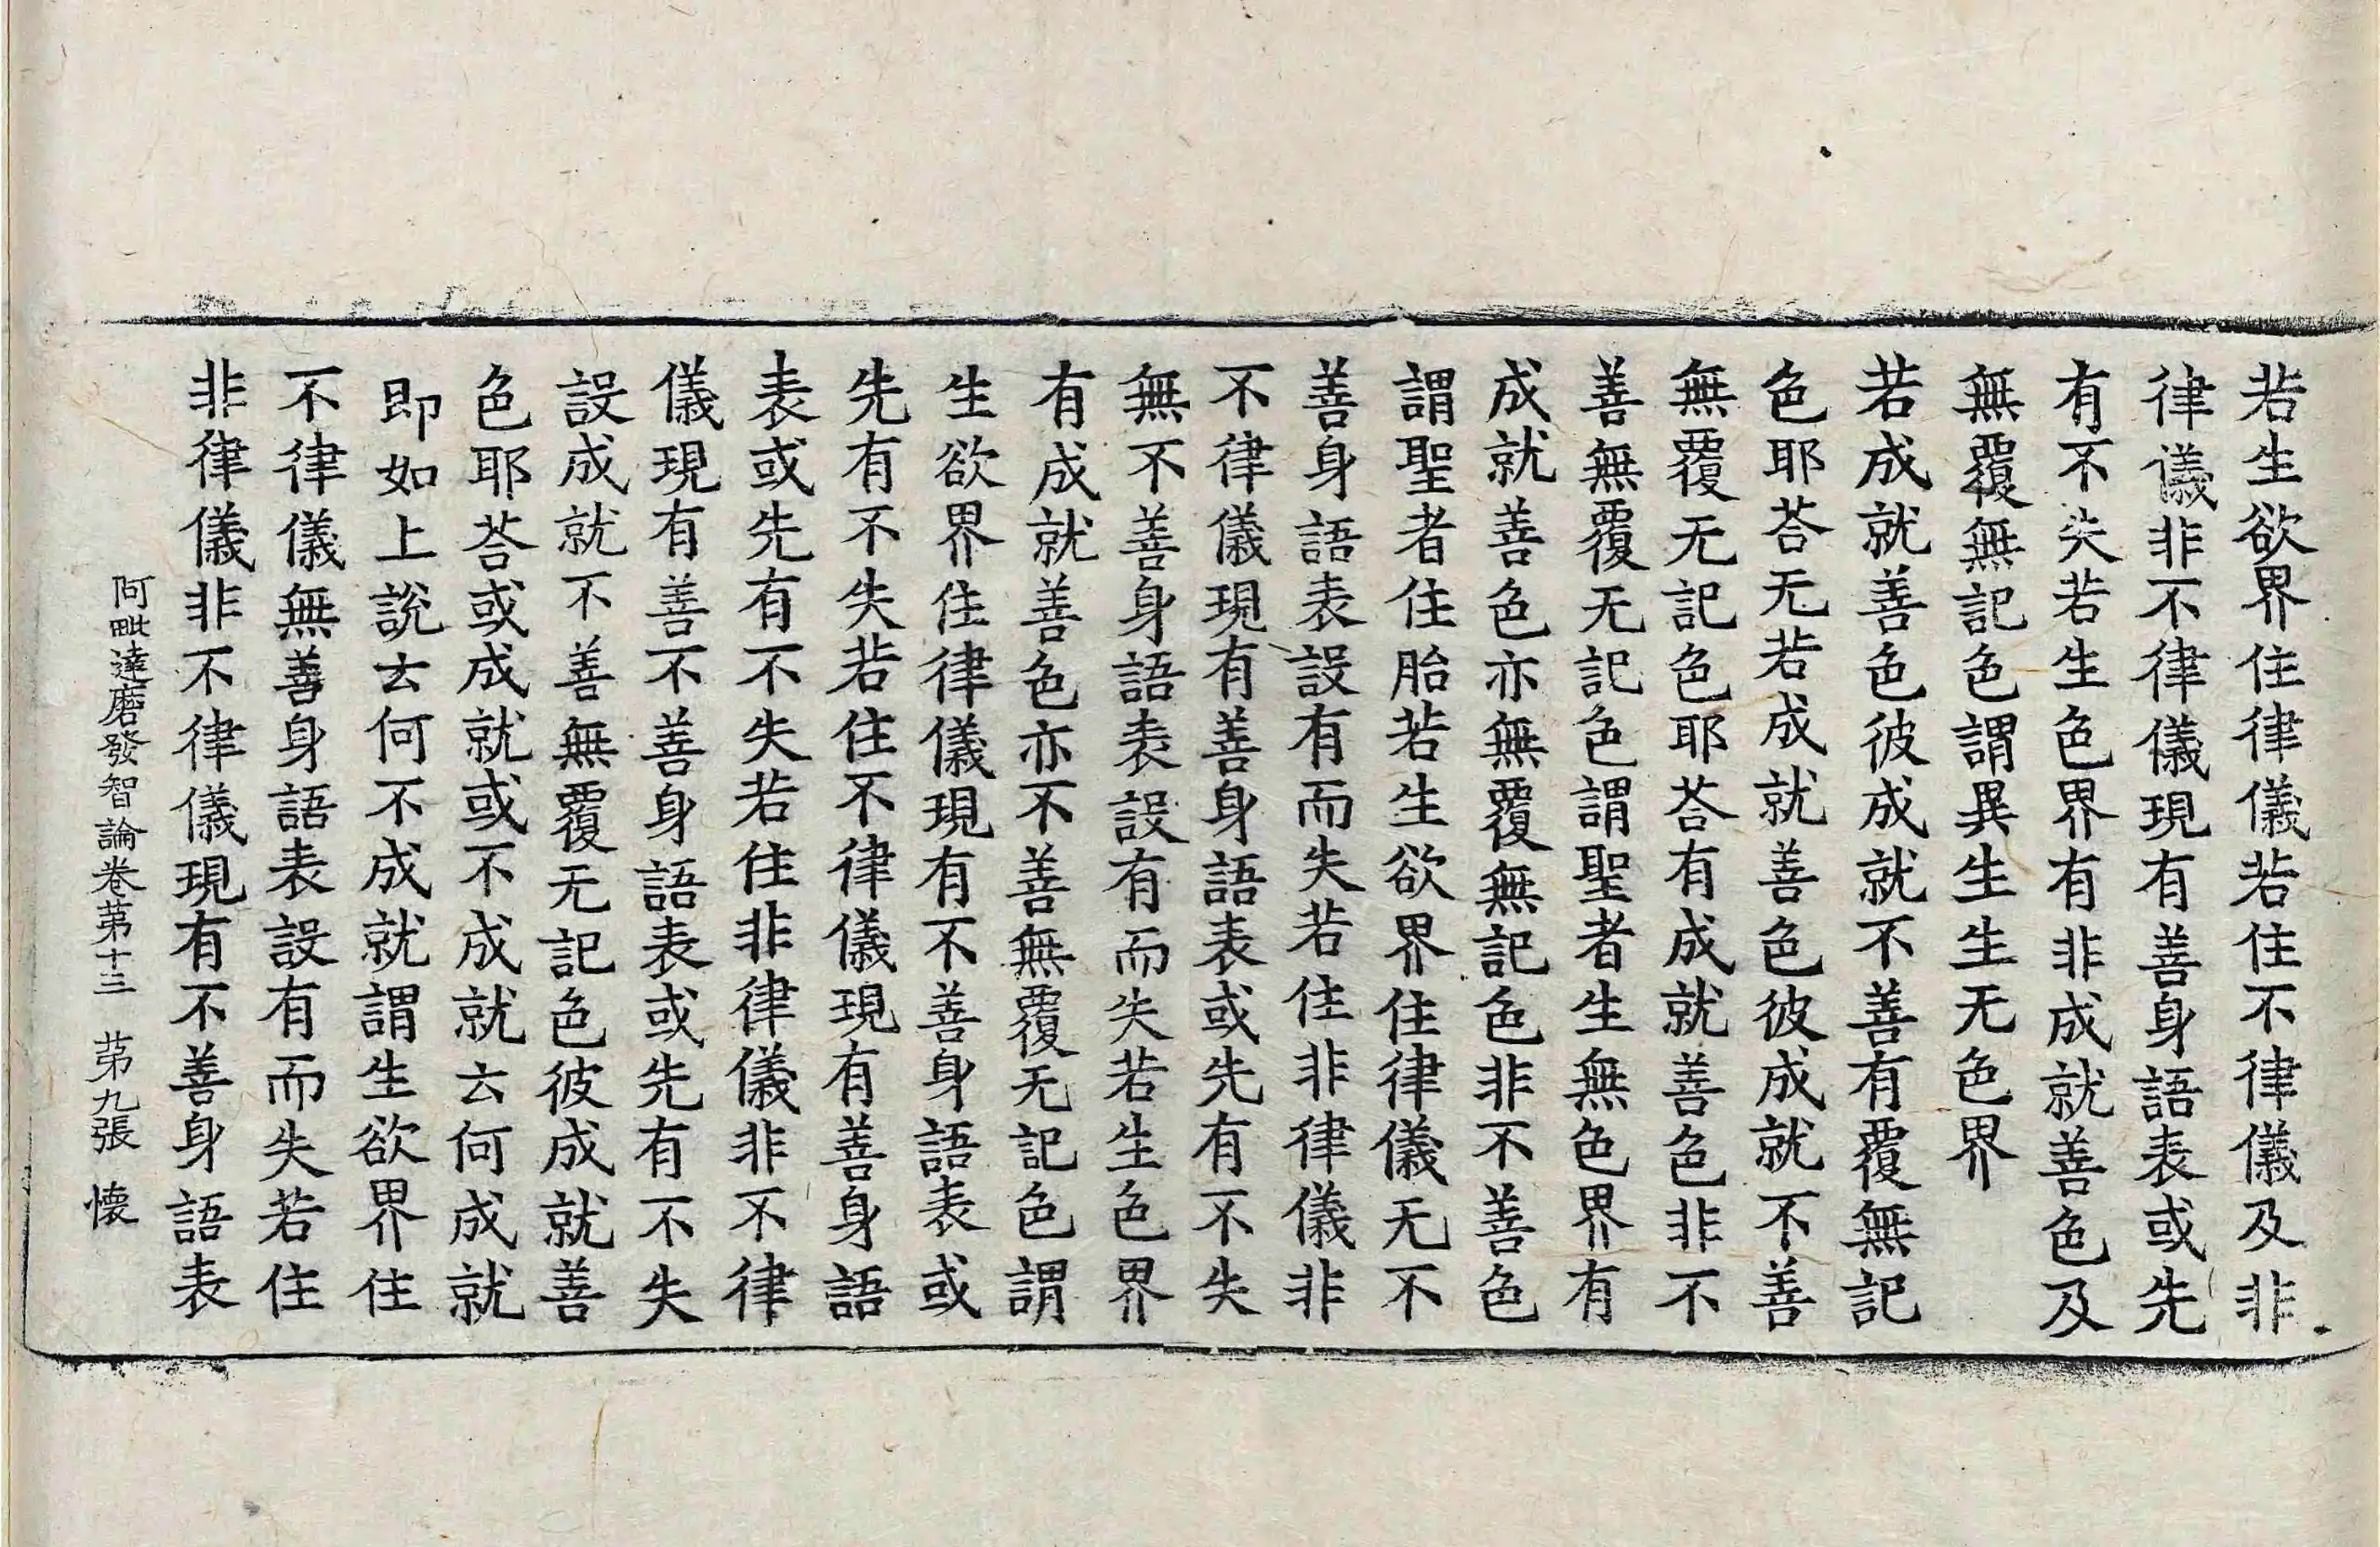 若生欲界住律儀若住不律儀及非
律儀非不律儀現有善身語表或先
有不失若生色界有非成就善色及
無覆無記色謂異生生无色界
若成就善色彼成就不善有覆無記
色耶荅无若成就善色彼成就不善
無覆无記色耶荅有成就善色非不
善無覆无記色謂聖者生無色界有
成就善色亦無覆無記色非不善色
謂聖者住胎若生欲界住律儀无不
善身語表設有而失若住非律儀非
不律儀現有善身語表或先有不失
無不善身語表設有而失若生色界
有成就善色亦不善無覆无記色謂
生欲界住律儀現有不善身語表或
先有不失若住不律儀現有善身語
表或先有不失若住非律儀非不律
儀現有善不善身語表或先有不失
設成就不善無覆无記色彼成就善
色耶荅或成就或不成就云何成就
即如上說云何不成就謂生欲界住
不律儀無善身語表設有而失若住
非律儀非不律儀現有不善身語表
阿毗達磨發智論卷苐十三　苐九張　懷